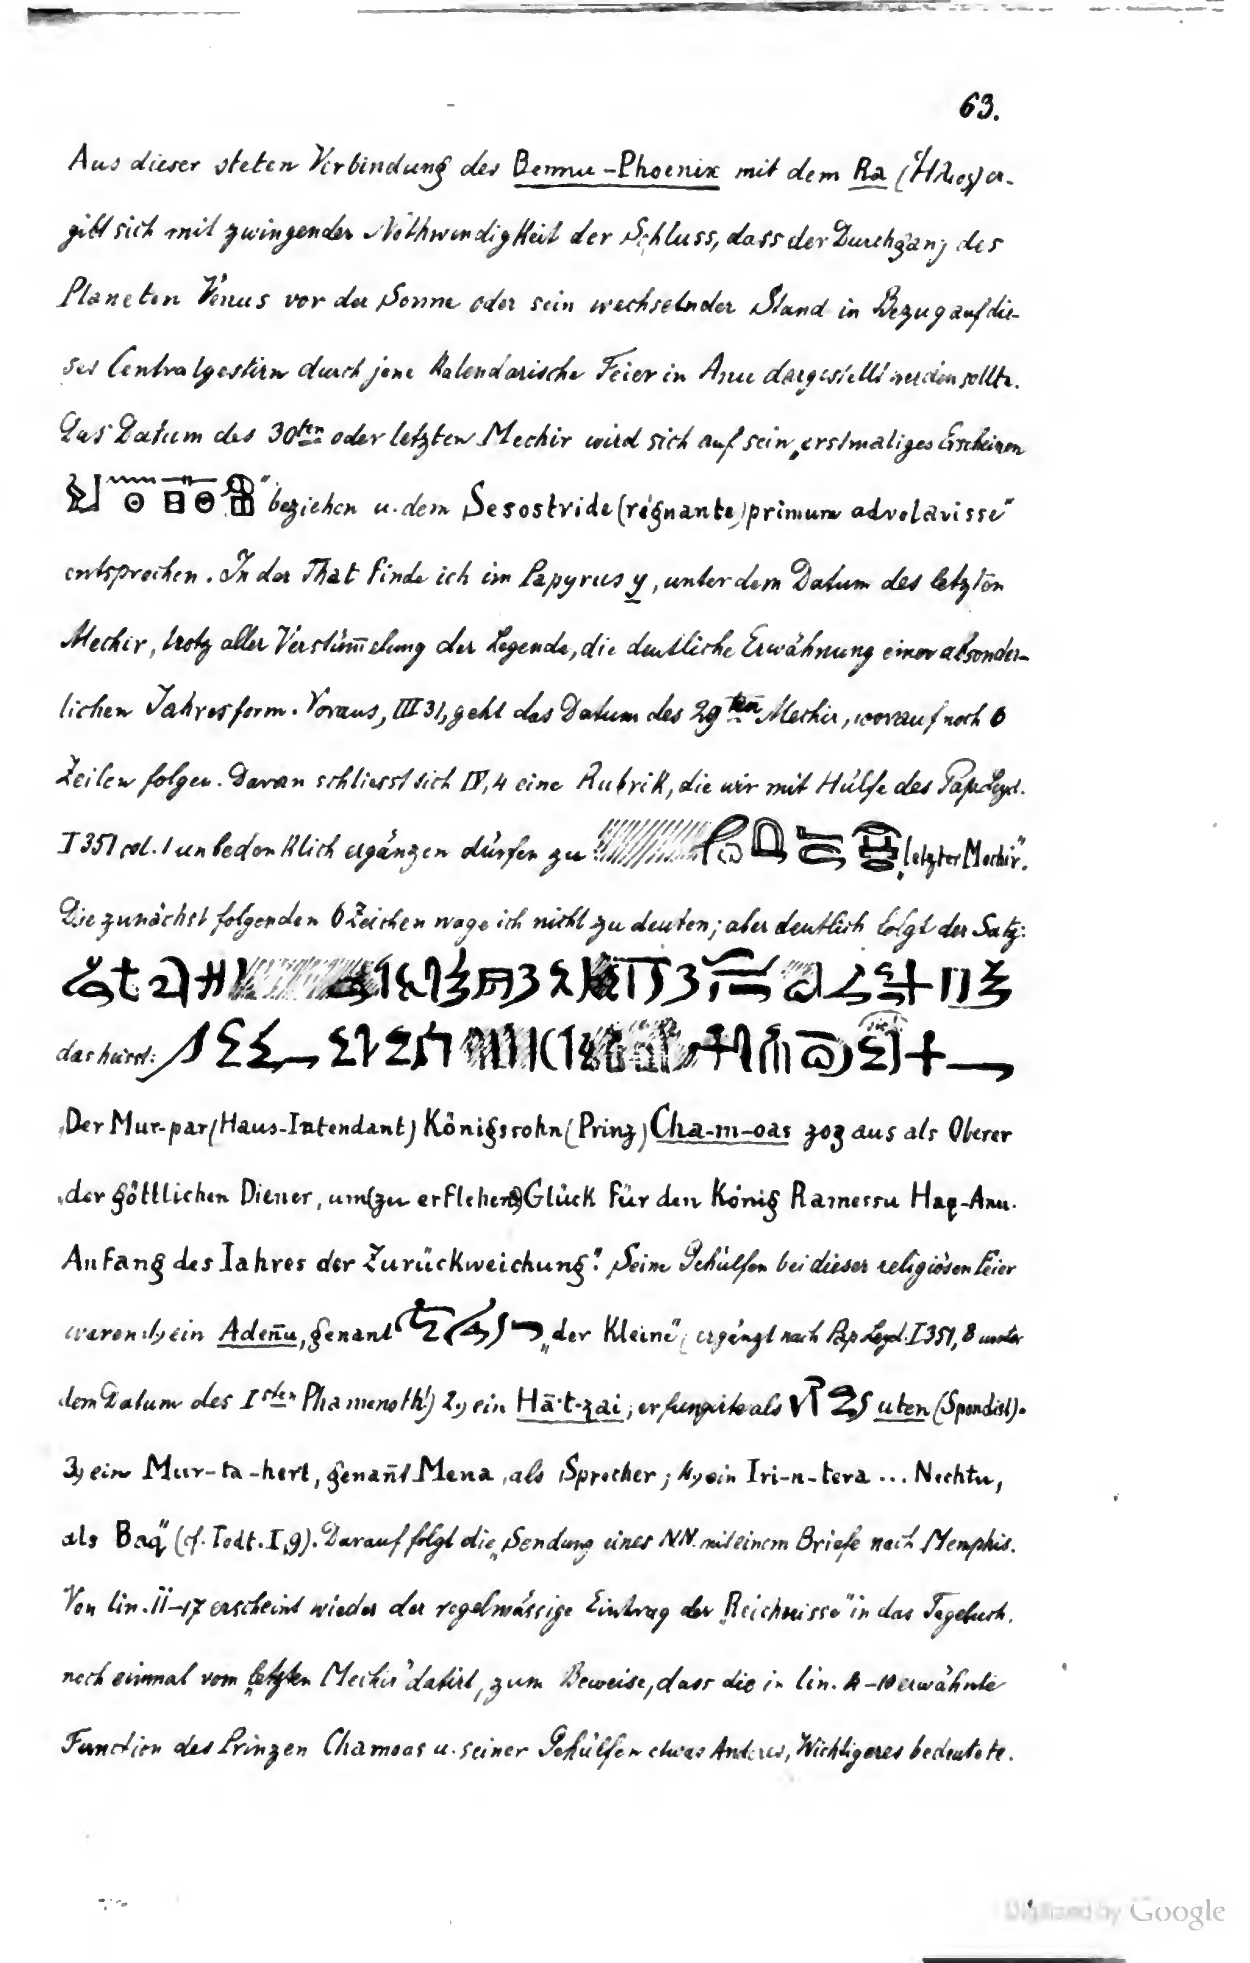 63.
Aus dieser steten Verbindung des Bennu-Phoenix mit dem Ra (Ἥλιος) er-
gibt sich mit zwingender Nothwendigkeit der Schluss, dass der Durchgang des
Planeten Venus vor der Sonne oder sein wechselnder Stand in Bezug auf die-
ses Centralgestirn durch jene kalendarische Feier in Anu dargestellt werden sollte.
Das Datum des 30ten oder letzten Mechir wird sich auf sein „erstmaliges Erscheinen
“ beziehen u. dem „Sesostride (regnante) primum advolavisse“
entsprechen. In der That finde ich im Papyrus y, unter dem Datum des letzten
Mechir, trotz aller Verstüm̄elung der Legende, die deutliche Erwähnung einer absonder-
lichen Jahresform. Voraus, III 31, geht das Datum des 29ten Mechir, worauf noch 6
Zeilen folgen. Daran schliesst sich IV, 4 eine Rubrik, die wir mit Hülfe des Pap. Leyd.
I 351 col. 1 unbedenklich ergänzen dürfen zu „letzter Mechir“.
Die zunächst folgenden 6 Zeichen wage ich nicht zu deuten; aber deutlich folgt der Satz:
das heisst:
„Der Mur-par (Haus-Intendant) Königssohn (Prinz) Cha-m-oas zog aus als Oberer
„der göttlichen Diener, um (zu erflehen) Glück für den König Ramessu Haq-Anu.
Anfang des Iahres der Zurückweichung“. Seine Gehülfen bei dieser religiösen Feier
waren 1, ein Aden̄u, genant „der Kleine“, ergänzt nach Pap. Leyd. I 351, 8 unter
dem Datum des 1sten Phamenoth) 2, ein Hā-t-zai; er fungirte als uten (Spondist).
3, ein Mur-ta-hert, genan̄t Mena, als Sprecher; 4, ein Iri-n-tera ... Nechtu,
als Baq“ (cf. Todt. I, 9). Darauf folgt die „Sendung eines NN. mit einem Briefe nach Memphis.
Von lin. 11–17 erscheint wieder der regelmässige Eintrag der „Reichnisse“ in das Tagebuch,
noch einmal vom „letzten Mechir“ datirt, zum Beweise, dass die in lin. 4–10 erwähnte
Function des Prinzen Chamoas u. seiner Gehülfen etwas Anderes, Wichtigeres bedeutete.
Digitized by Google